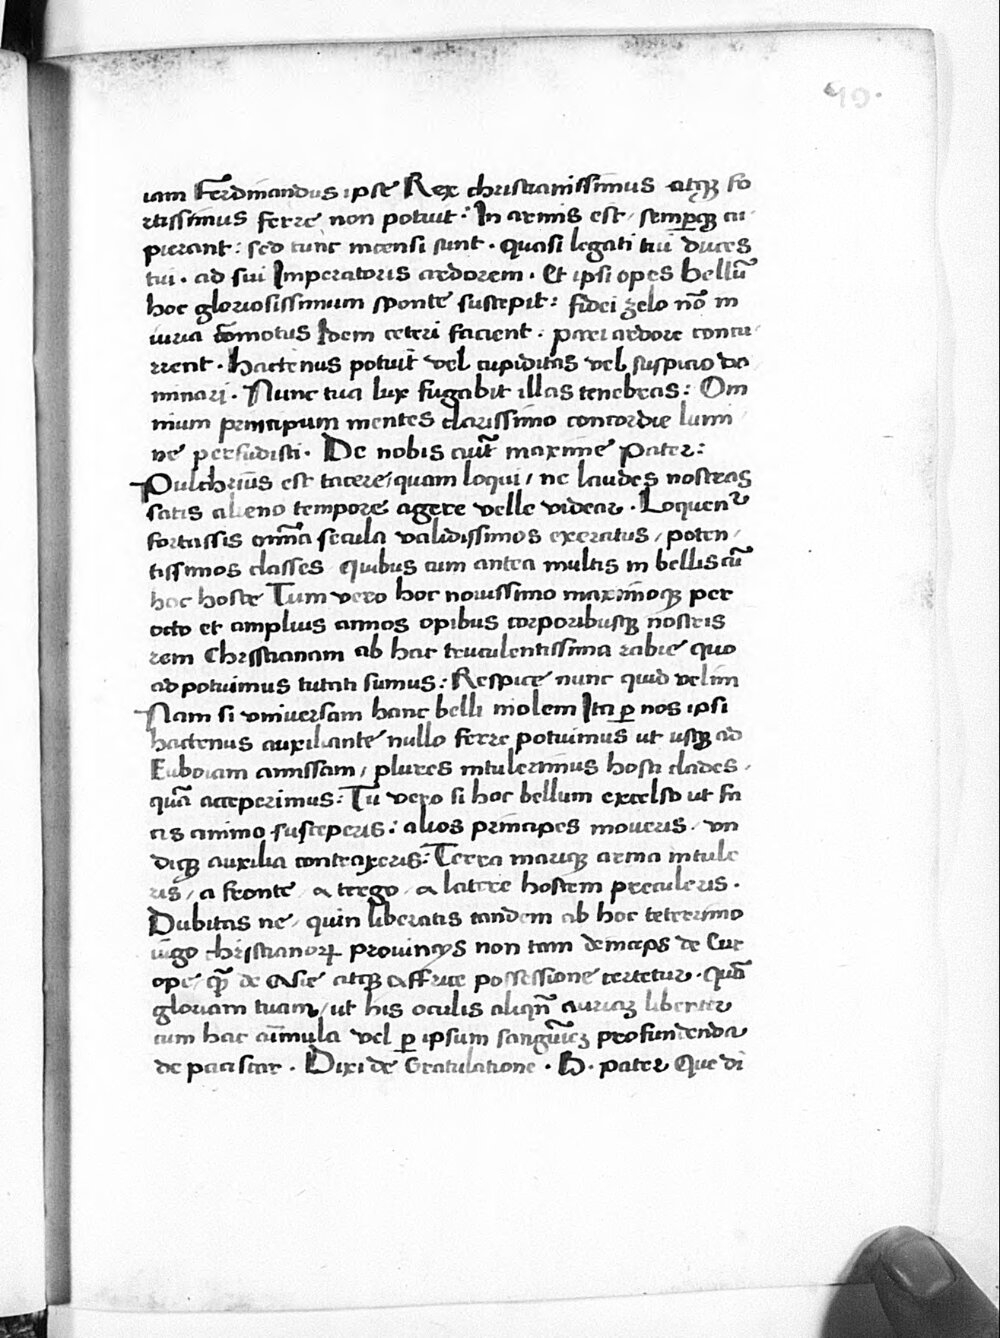 40.
iam Ferdinandus ipse Rex christianissimus atqꝫ fo
rtissimus ferre non potuit: In armis est, semperqꝫ cu
pierant: sed tunc incensi sunt. quasi legati tui duces
tui. ad sui Imperatoris ardorem. Et ipsi opes bellū
hoc gloriosissimum sponte suscepit: fidei zelo nō in
iuria cōmotus Idem ceteri facient. pari ardore concu
rrent. Hactenus potuit vel cupiditas vel suspicio do
minari. Nunc tua lux fugabit illas tenebras: Om
nium principum mentes clarissimo concordie lumi
ne perfudisti. De nobis aut̄ maxime Pater:
Pulchriūs est tacere, quam loqui, ne laudes nostras
satis alieno tempore agere velle videar. Loquent̄
fortassis om̄ia secula validissimos exercitus, poten,
tissimos classes quibus cum antea multis in bellis cū
hoc hoste Tum vero hoc nouissimo maximoqꝫ per
octo et amplius annos opibus corporibusqꝫ nostris
rem Christianam ab hac truculentissima rabie quo
ad potuimus tutati sumus: Respice nunc quid velim
Nam si vniuersam hanc belli molem Ita ꝑ nos ipsi
hactenus auxiliante nullo ferre potuimus ut usqꝫ ad
Euboiam amissam, plures intulerimus hosti clades,
quā acceperimus: Tu vero si hoc bellum excelso ut fa
cis animo susceperis: alios principes moueris. vn
diqꝫ auxilia contraxeris: Terra mariqꝫ arma intule
ris, a fronte, a tergo, a latere hostem preculeris.
Dubitas ne, quin liberatis tandem ab hoc teterrimo
iugo christianoꝝ prouincijs non tam deinceps de Eur
ope, qꝫ̄ de Asie atqꝫ Affrice possessione certetur. Quā
gloriam tuam, ut his oculis aliqn̄ auriaꝫ libenter
cum hac aīmula vel ꝑ ipsum sanguīeꝫ profundenda
de paciscar. Dixi de Gratulatione. B. pater Que di